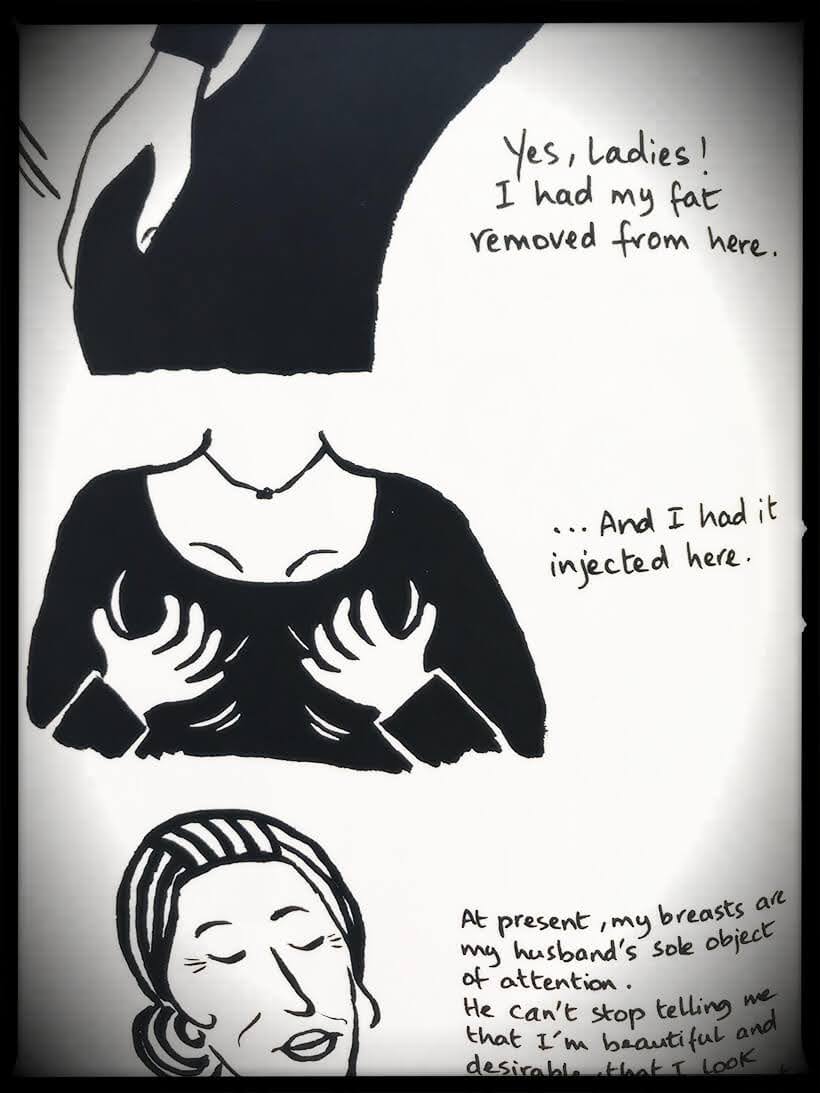 Yes, Ladies!
I had my fat
removed from here.
... And I had it
injected here.
At present, my breasts are
my husband's sole object
of attention.
He can't stop telling me
that I'm beautiful and
desirable, that I look